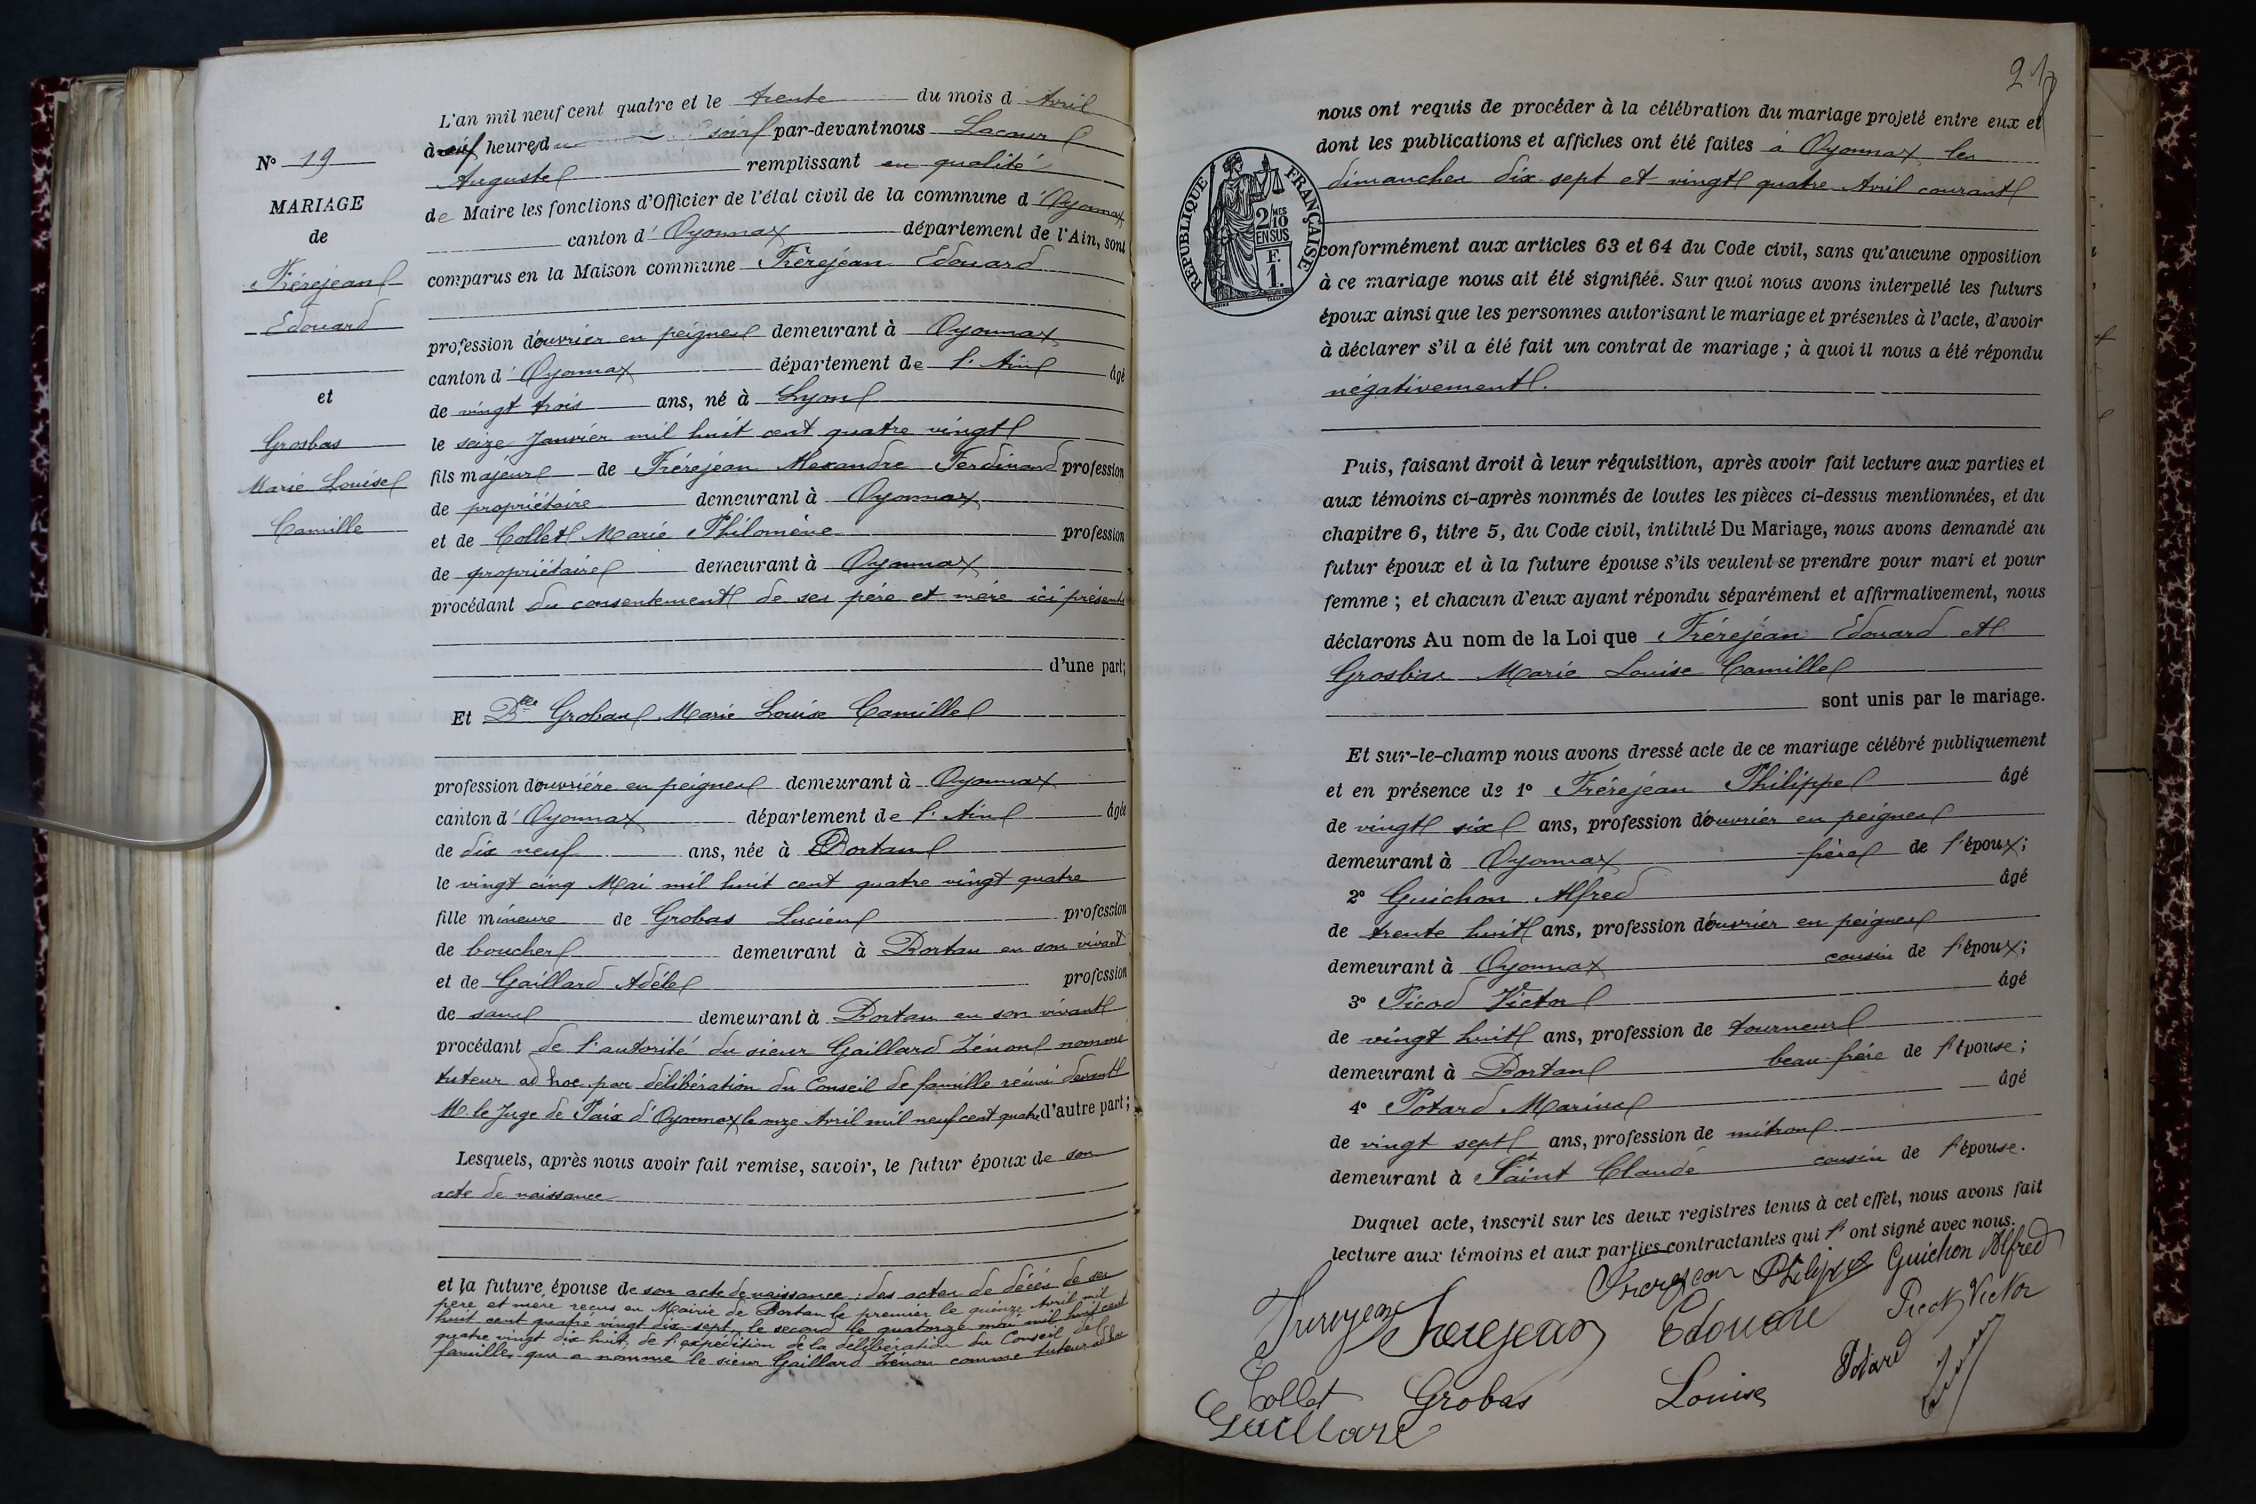 N° 19
MARIAGE
de
Fréréjean
Edouard
et
Grosbas
Marie Louise
Camille
L'an mil neuf cent quatre et le trente du mois d Avril
à neuf heures du soir par-devant nous Lacour
Auguste remplissant en qualité
de Maire les fonctions d'Officier de l'état civil de la commune d'Oyonnax
canton d'Oyonnax département de l'Ain, sont
comparus en la Maison commune Fréréjean Edouard
profession d'ouvrier en peignes demeurant à Oyonnax
canton d'Oyonnax département de l'Ain âgé
de vingt trois ans, né à Lyon
le seize Janvier mil huit cent quatre vingt
fils majeur de Fréréjean Alexandre Ferdinand profession
de propriétaire demeurant à Oyonnax
et de Collet Marie Philomène profession
de propriétaire demeurant à Oyonnax
procédant du consentement de ses père et mère ici présents
d'une part;
Et Dlle Grobas Marie Louise Camille
profession d'ouvrière en peignes demeurant à Oyonnax
canton d'Oyonnax département de l'Ain âgée
de dix neuf ans, née à Dortan
le vingt cinq Mai mil huit cent quatre vingt quatre
fille mineure de Grobas Lucien profession
de boucher demeurant à Dortan en son vivant
et de Gaillard Adèle profession
de sans demeurant à Dortan en son vivant
procédant de l'autorité du sieur Gaillard Zénon nommé
tuteur ad hoc par délibération du Conseil de famille réuni devant
M. le Juge de Paix d'Oyonnax le onze Avril mil neuf cent quatre d'autre part;
Lesquels, après nous avoir fait remise, savoir, le futur époux de son
acte de naissance
et la future épouse de son acte de naissance; des actes de décès de ses
père et mère reçus en Mairie de Dortan le premier le quinze Avril mil
huit cent quatre vingt dix-sept, le second le quatorze mai mil huit cent
quatre vingt dix huit; de l'expédition de la délibération du Conseil de
famille qui a nommé le sieur Gaillard Zénon comme tuteur ad hoc
21
RÉPUBLIQUE FRANÇAISE
2/10 MES
EN SUS
F.
1.
nous ont requis de procéder à la célébration du mariage projeté entre eux et
dont les publications et affiches ont été faites à Oyonnax les
dimanches dix sept et vingt quatre Avril courant
conformément aux articles 63 et 64 du Code civil, sans qu'aucune opposition
à ce mariage nous ait été signifiée. Sur quoi nous avons interpellé les futurs
époux ainsi que les personnes autorisant le mariage et présentes à l'acte, d'avoir
à déclarer s'il a été fait un contrat de mariage; à quoi il nous a été répondu
négativement.
Puis, faisant droit à leur réquisition, après avoir fait lecture aux parties et
aux témoins ci-après nommés de toutes les pièces ci-dessus mentionnées, et du
chapitre 6, titre 5, du Code civil, intitulé Du Mariage, nous avons demandé au
futur époux et à la future épouse s'ils veulent se prendre pour mari et pour
femme; et chacun d'eux ayant répondu séparément et affirmativement, nous
déclarons Au nom de la Loi que Fréréjean Edouard et
Grosbas Marie Louise Camille
sont unis par le mariage.
Et sur-le-champ nous avons dressé acte de ce mariage célébré publiquement
et en présence de 1° Fréréjean Philippe âgé
de vingt six ans, profession d'ouvrier en peignes
demeurant à Oyonnax frère de l'époux;
2° Guichon Alfred âgé
de trente huit ans, profession d'ouvrier en peignes
demeurant à Oyonnax cousin de l'époux;
3° Picod Victor âgé
de vingt huit ans, profession de tourneur
demeurant à Dortan beau-frère de l'épouse;
4° Potard Marius âgé
de vingt sept ans, profession de mitron
demeurant à Saint Claude cousin de l'épouse.
Duquel acte, inscrit sur les deux registres tenus à cet effet, nous avons fait
lecture aux témoins et aux parties contractantes qui l'ont signé avec nous.
Frerejean Philippe Guichon Alfred
Frerejean Frerejean Edouard Picod Victor
Collet Grobas Louise Potard
Gaillard